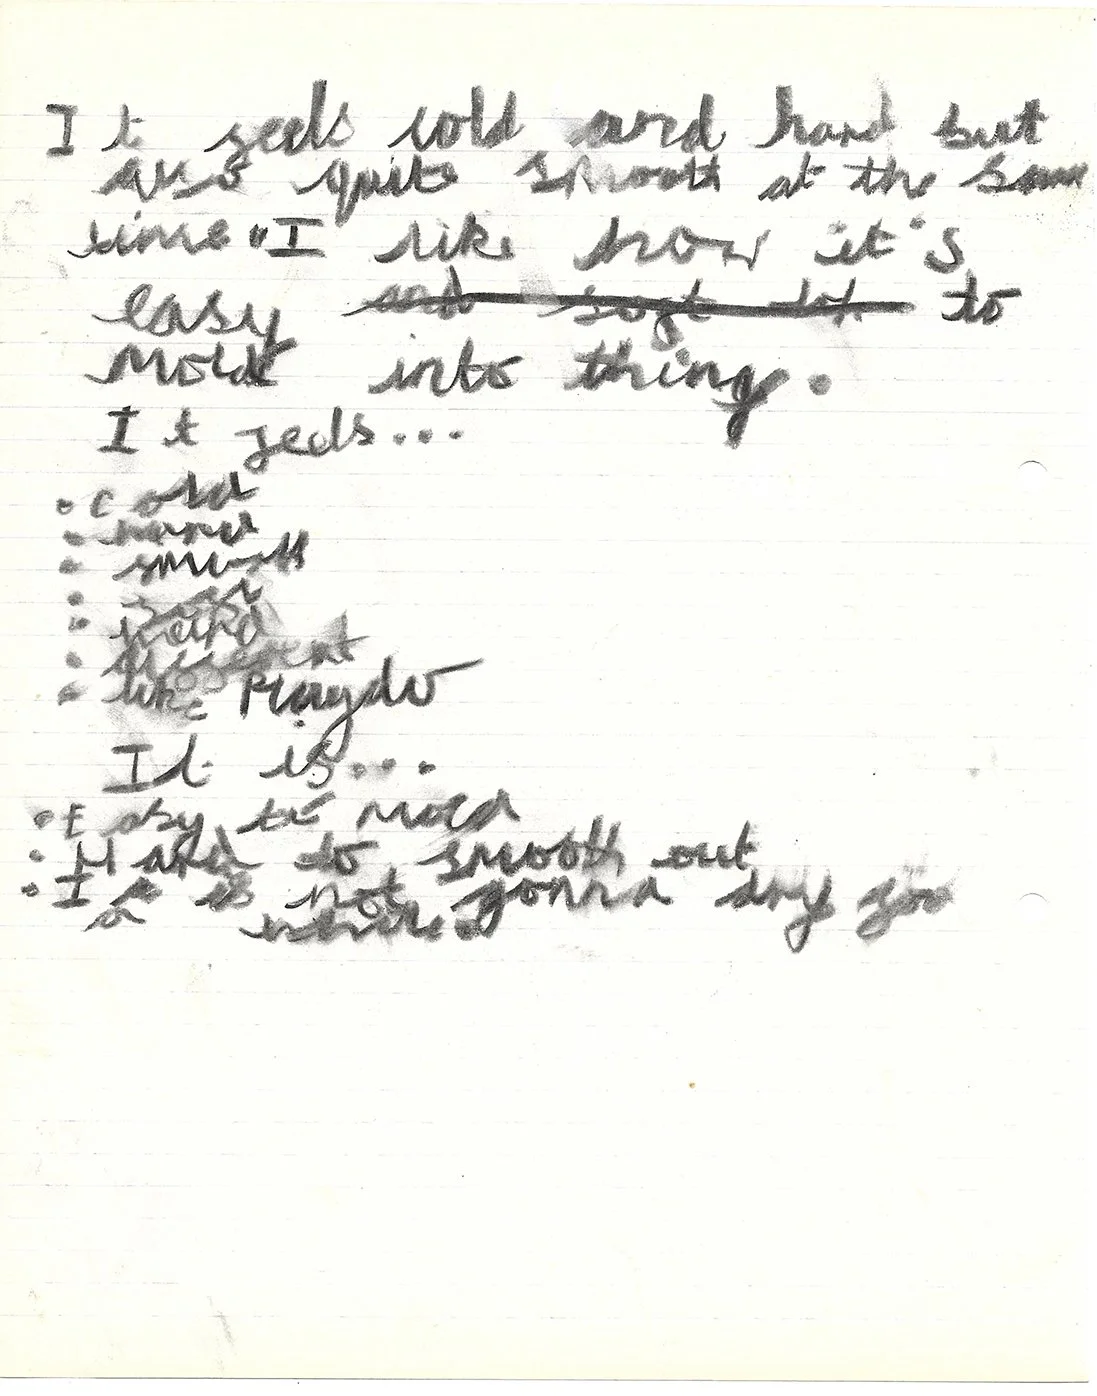 It feels cold and hard but
also quite smooth at the same
time "I like how it's
easy and soft to
mold into thing.
It feels...
• cold
• hard
• smooth
•
• weird
• different
• like Playdo
It is...
• Easy to mold
• Hard to smooth out
• It is not gonna dry for
a while.